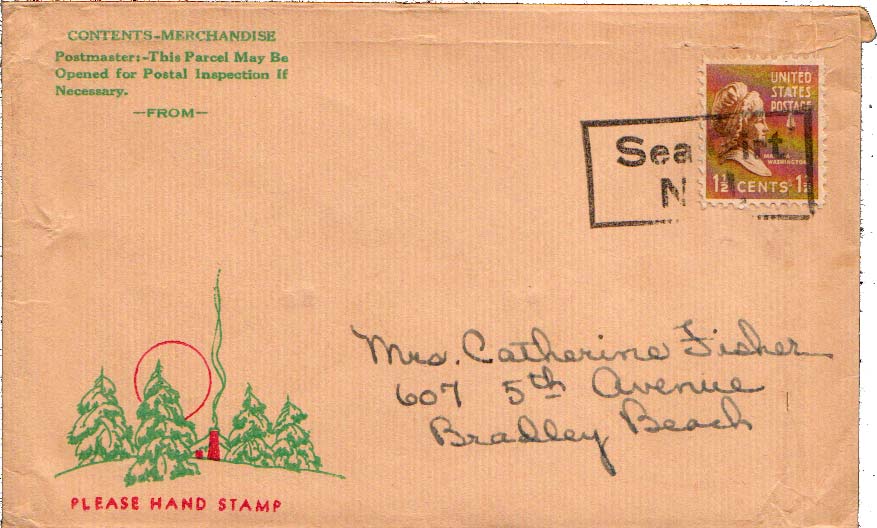 CONTENTS-MERCHANDISE
Postmaster:-This Parcel May Be
Opened for Postal Inspection If
Necessary.
—FROM—
UNITED
STATES
POSTAGE
Sea irt
N.
WASHINGTON
1½ CENTS 1½
Mrs. Catherine Fisher
607 5th Avenue
Bradley Beach
PLEASE HAND STAMP